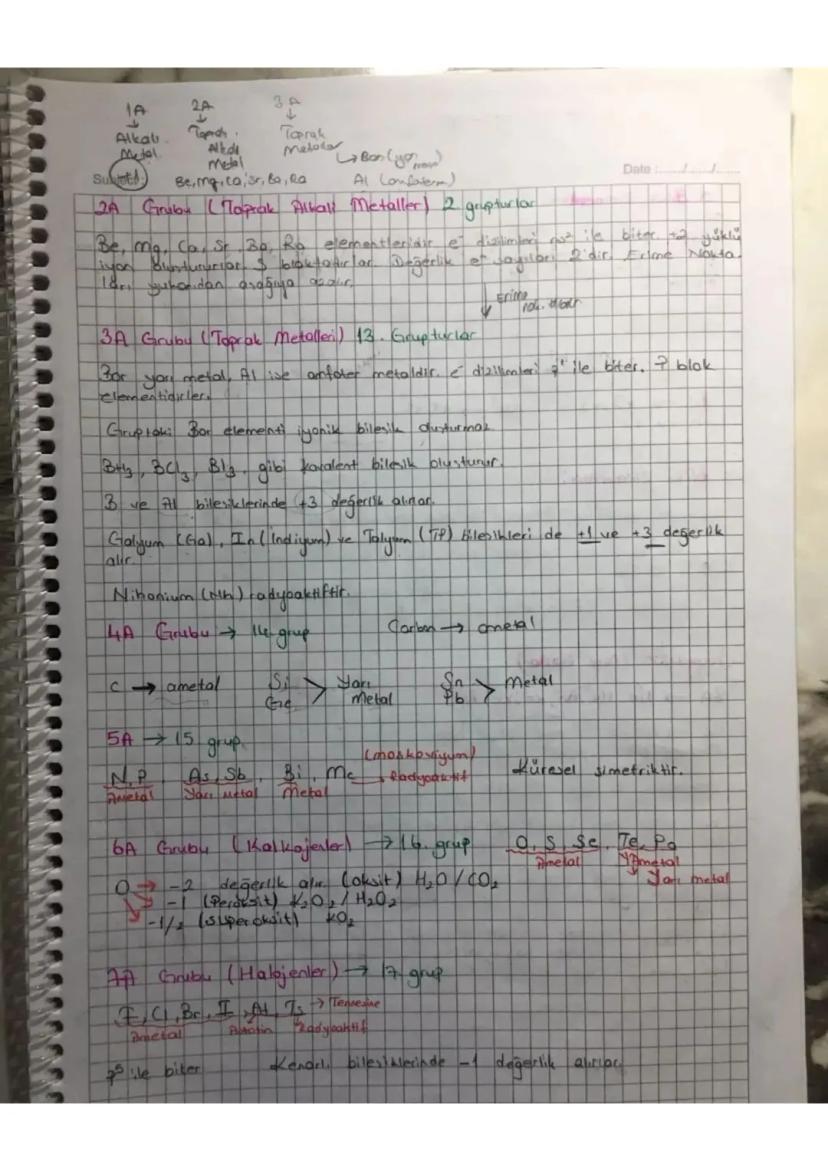 1A 2A 3A
Alkali Toprak Toprak
Metal Alkali Metaller
Metal → Bor (yarı metal)
Subject: Be, Mg, Ca, Sr, Ba, Ra Al (amfoterm) Date : ..../..../....
2A Grubu (Toprak Alkali Metaller) 2 grupturlar
Be, Mg, Ca, Sr, Ba, Ra elementleridir e⁻ dizilimleri ns² ile biter +2 yüklü
iyon oluştururlar S bloktadırlar. Değerlik e⁻ sayıları 2'dir. Erime Nokta
ları yukarıdan aşağıya azalır.
↓ Erime
nok. azalır
3A Grubu (Toprak Metalleri) 13. Grupturlar
Bor yarı metal, Al ise amfoter metaldir. e⁻ dizilimleri p¹ ile biter. P blok
elementidirler.
Gruptaki Bor elementi iyonik bileşik oluşturmaz
BH₃, BCl₃, BI₃ gibi kovalent bileşik oluşturur.
B ve Al bileşiklerinde +3 değerlik alırlar.
Galyum (Ga), In (İndiyum) ve Talyum (Tl) Bileşikleri de +1 ve +3 değerlik
alır.
Nihonium (Nh) radyoaktiftir.
4A Grubu → 14. grup Carbon → ametal
C → ametal Si Ge > Yarı Metal Sn Pb > Metal
5A → 15 grup
(moskoviyum)
N, P, As, Sb, Bi, Mc → Radyoaktif Küresel simetriktir.
Ametal Yarı metal Metal
6A Grubu (Kalkojenler) → 16. grup O, S, Se, Te, Po
Ametal Yarı metal
O → -2 değerlik alır (oksit) H₂O / CO₂ Yarı metal
→ -1 (Peroksit) K₂O₂ / H₂O₂
→ -1/2 (süperoksit) KO₂
7A Grubu (Halojenler) → 17 grup
F, Cl, Br, I, At, Ts → Tennesine
Ametal Astatin Radyoaktif
p⁵ ile biter Kendi bileşiklerinde -1 değerlik alırlar